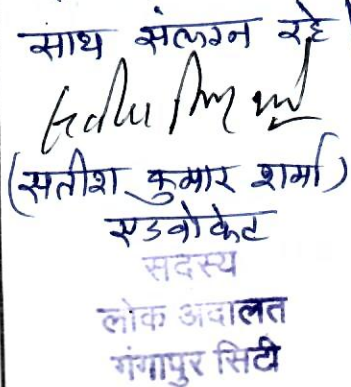 साथ संलग्न रहे
(सतीश कुमार शर्मा)
एडवोकेट
सदस्य
लोक अदालत
गंगापुर सिटी